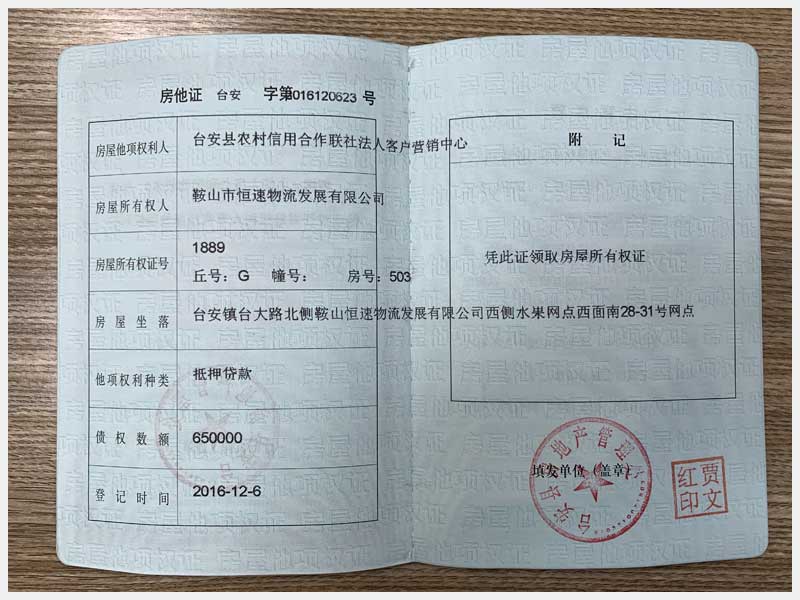 房他证 台安 字第016120623 号
房屋他项权利人 台安县农村信用合作联社法人客户营销中心
房屋所有权人 鞍山市恒速物流发展有限公司
房屋所有权证号 1889
丘号：G 幢号： 房号：503
房屋坐落 台安镇台大路北侧鞍山恒速物流发展有限公司西侧水果网点西面南28-31号网点
他项权利种类 抵押贷款
债权数额 650000
登记时间 2016-12-6
附记
凭此证领取房屋所有权证
填发单位（盖章）
台安县 地产管理
贾文红印